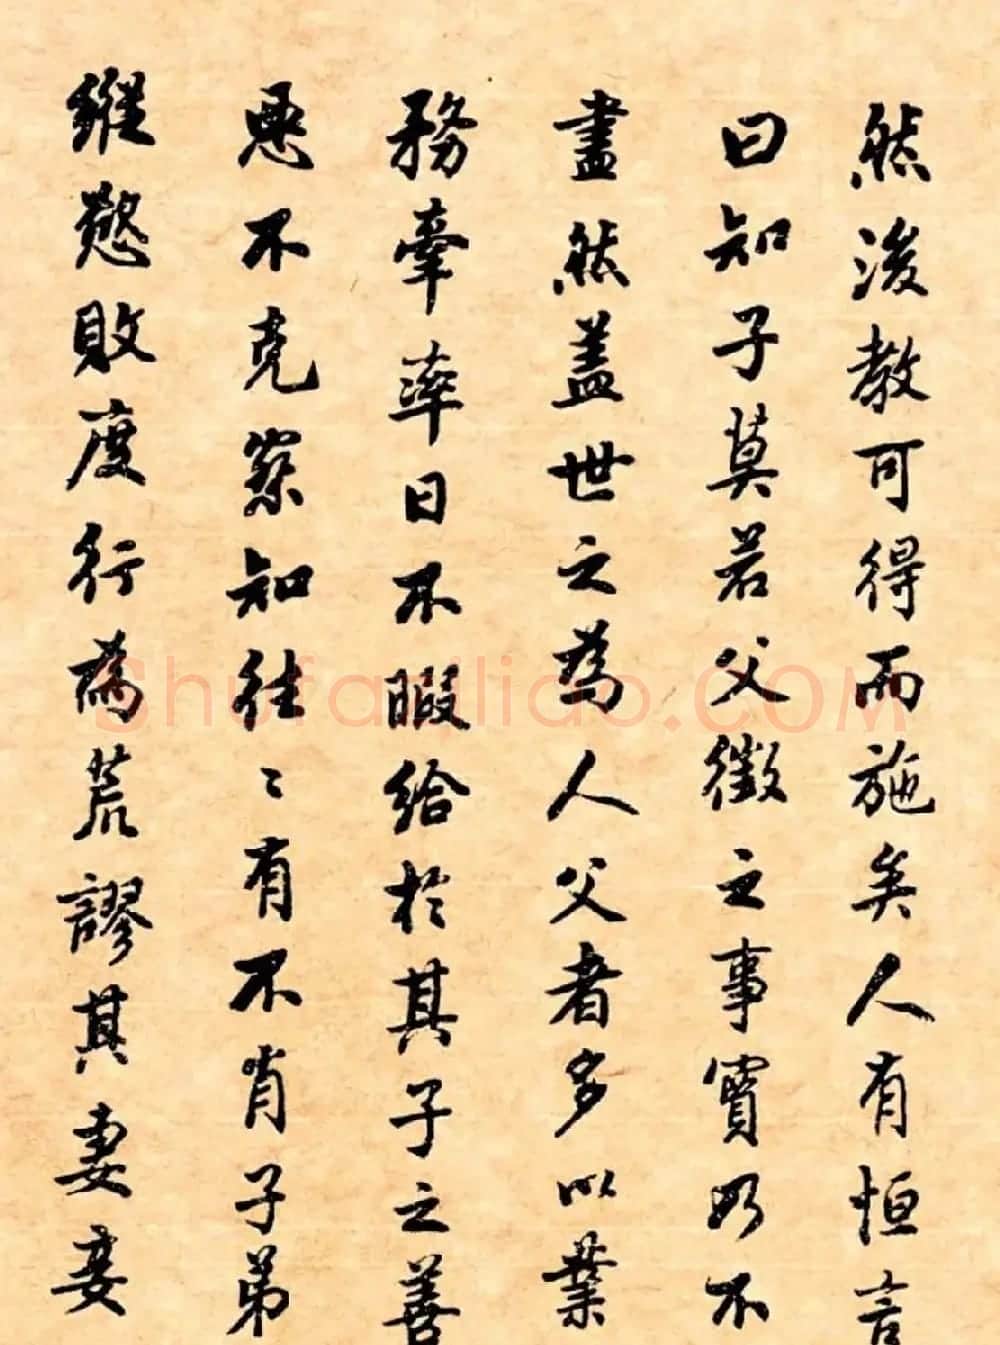 然後教可得而施矣人有恒言
曰知子莫若父徵之事實乃不
盡然蓋世之為人父者多以業
務牽率日不暇給於其子之善
惡不克察知往〻有不肖子弟
縱慾敗度行為荒謬其妻妾
Shufaziliao.COM